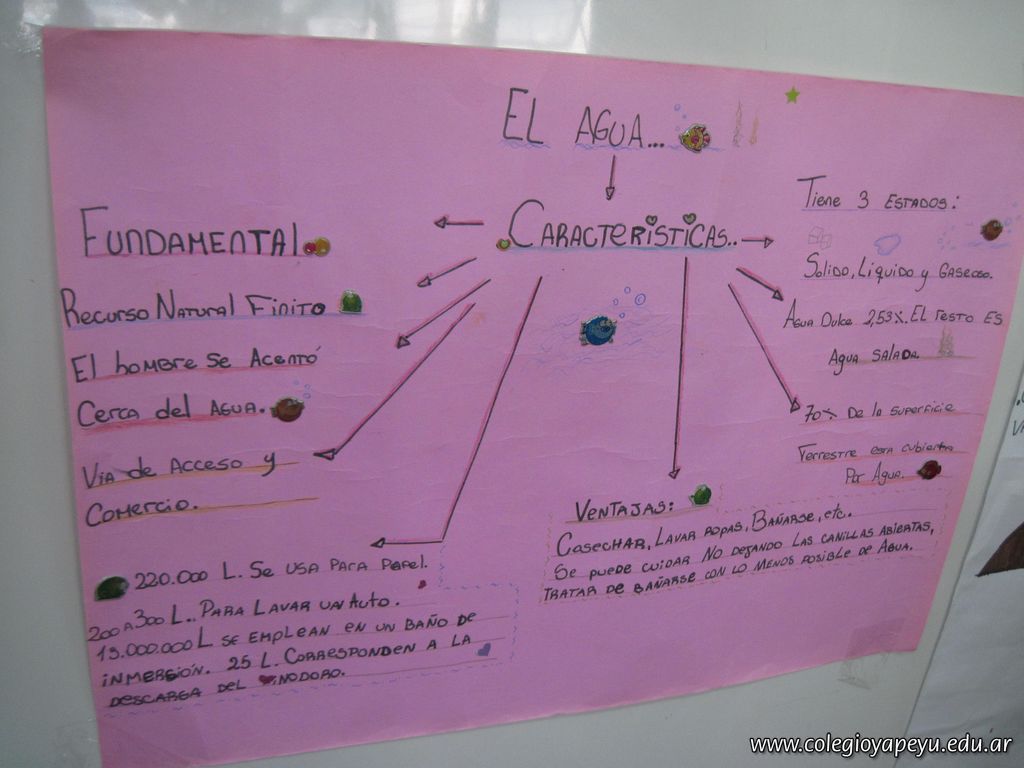 EL AGUA...
CARACTERÍSTICAS..
FUNDAMENTAL
RECURSO NATURAL FINITO
El hOMBRE SE ACENTÓ
CERCA del AGUA.
VÍA de ACCESO y
COMERCIO.
220.000 L. SE USA PARA PAPEL.
200 A 300 L.. PARA LAVAR UN AUTO.
15.000.000 L SE EMPLEAN EN UN BAÑO DE
INMERSIÓN. 25 L. CORRESPONDEN A LA
DESCARGA DEL INODORO.
VENTAJAS:
COSECHAR, LAVAR ROPAS, BAÑARSE, etc.
SE PUEDE CUIDAR NO DEJANDO LAS CANILLAS ABIERTAS,
TRATAR DE BAÑARSE CON LO MENOS POSIBLE DE AGUA.
Tiene 3 ESTADOS:
Solido, Líquido y GASEOSO.
AGUA DULCE 2,53%. EL resto ES
AGUA SALADA.
70% De la superficie
Terrestre esta cubierta
Por Agua.
www.colegioyapeyu.edu.ar